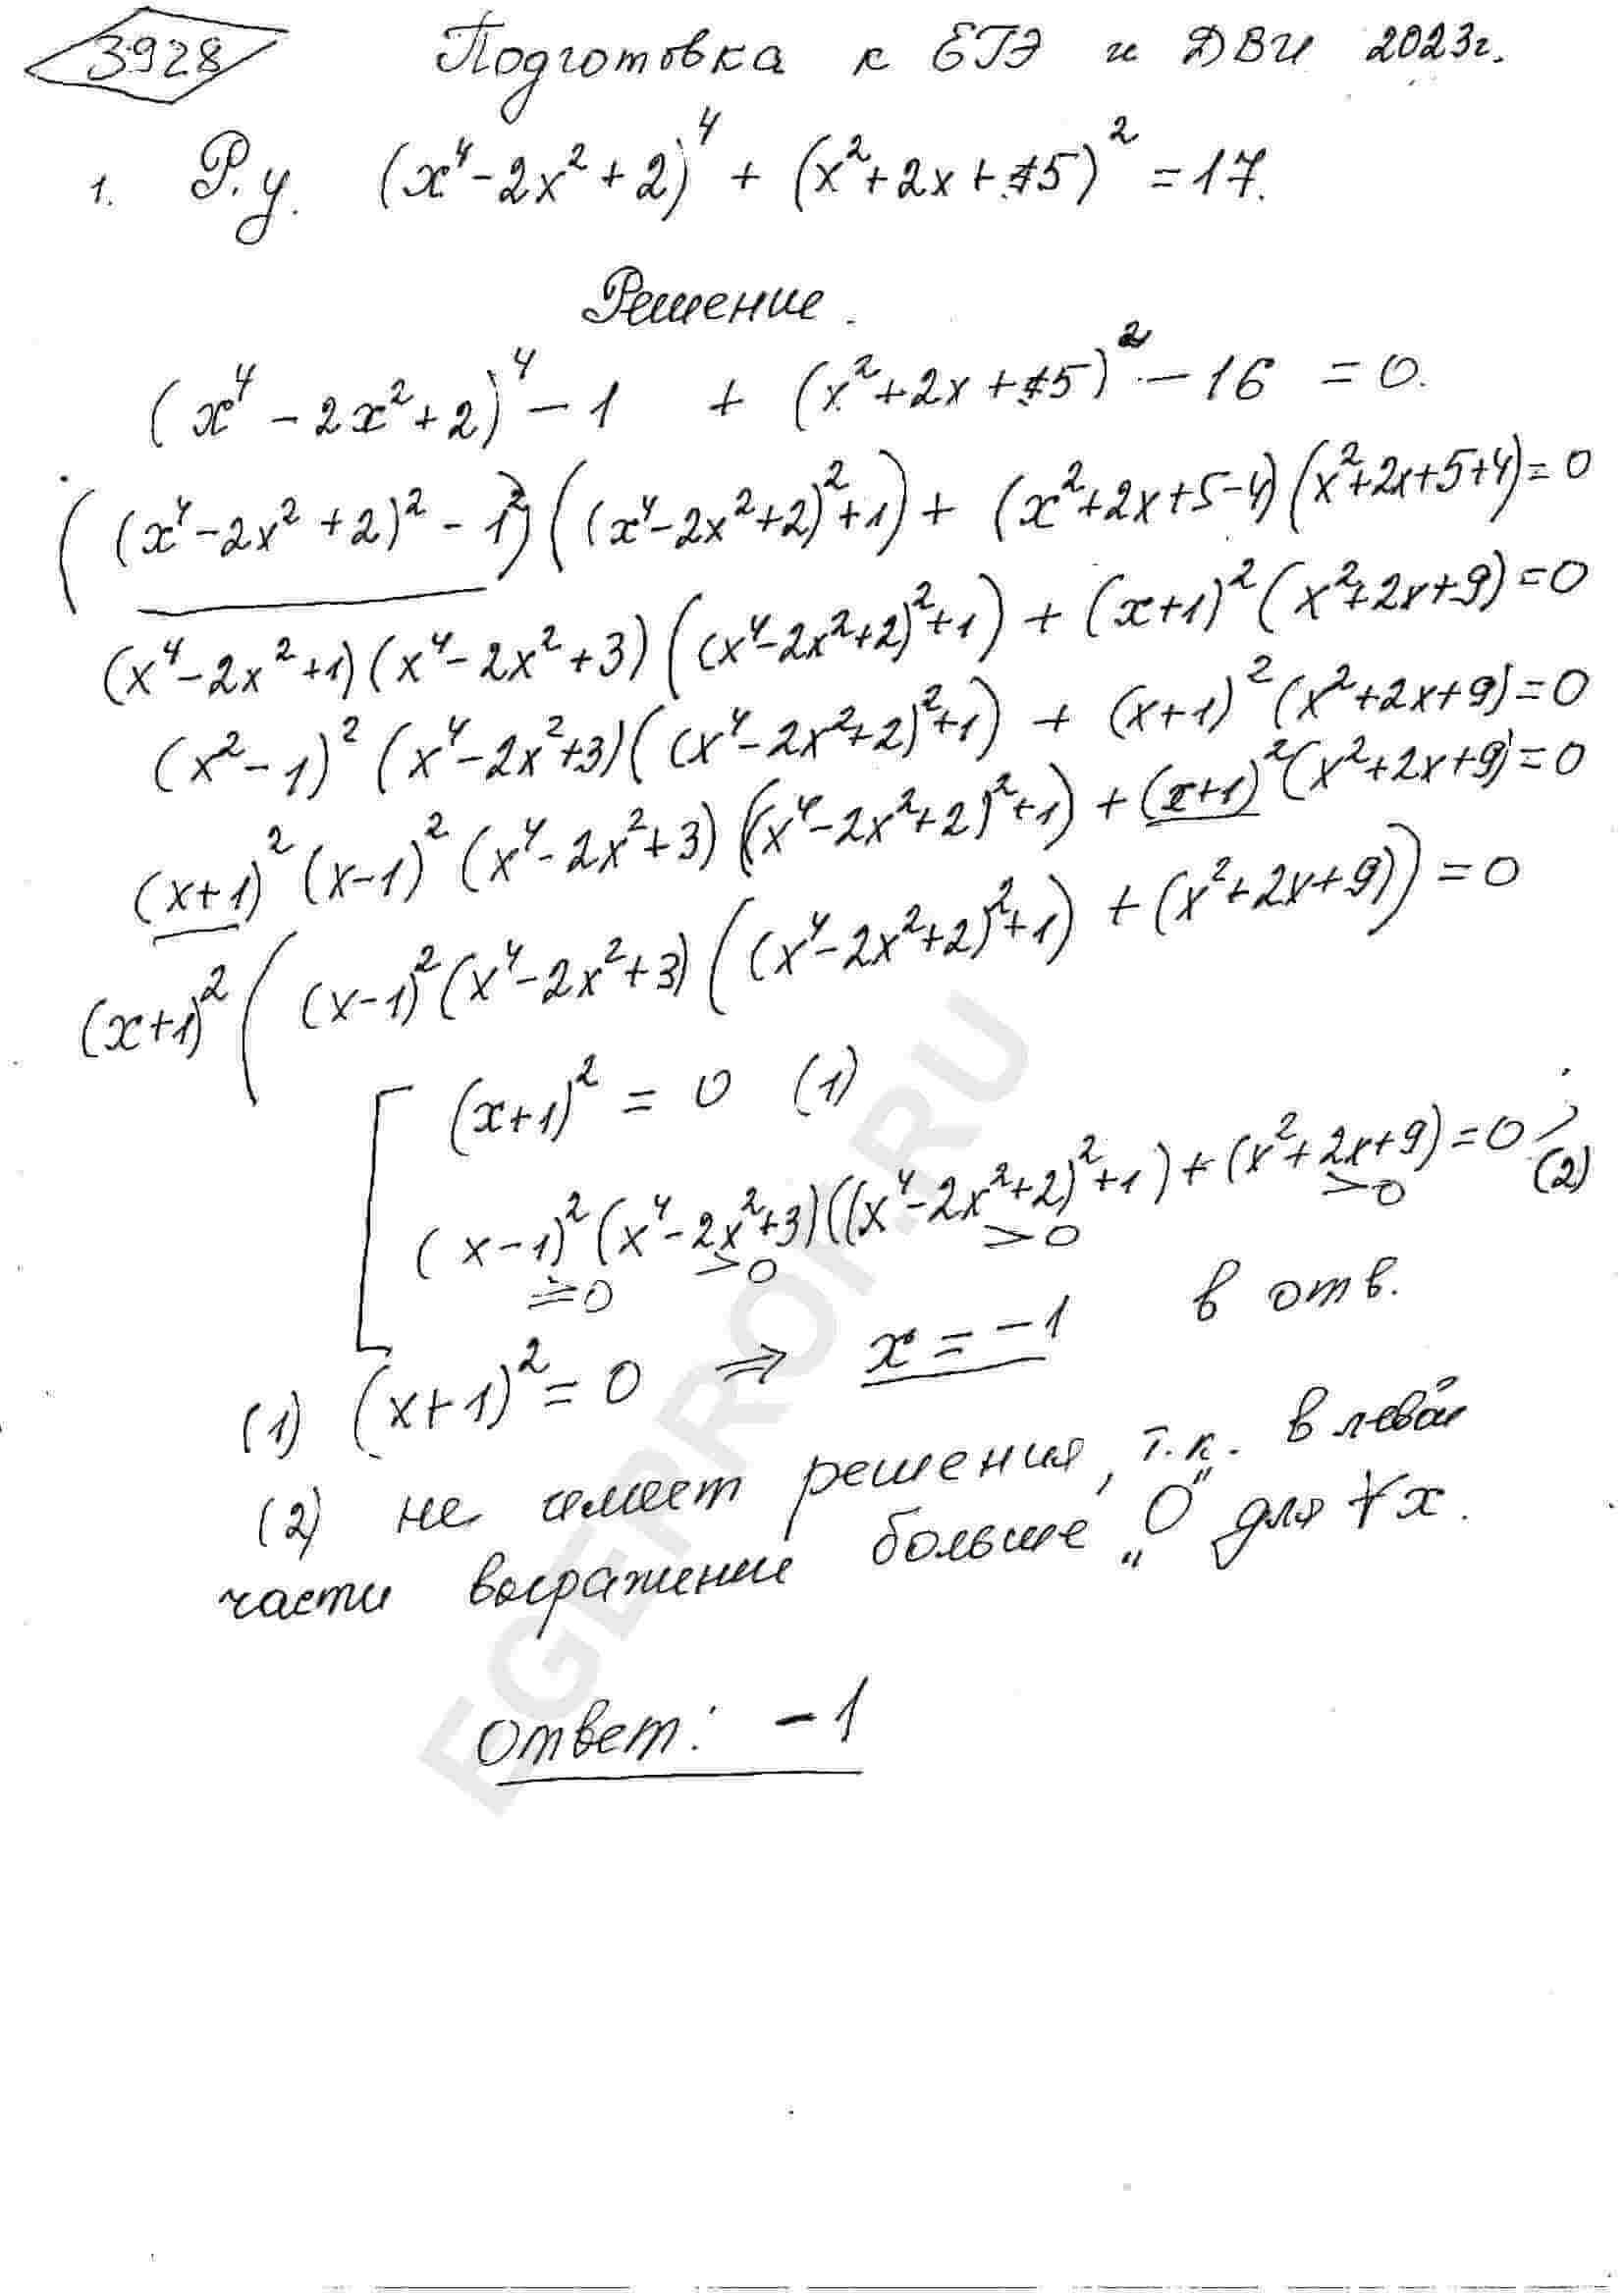 3928 Подготовка к ЕГЭ и ДВИ 2023г.
1. Р.у. (x⁴-2x²+2)⁴ + (x²+2x+5)² = 17.
Решение.
(x⁴-2x²+2)⁴-1 + (x²+2x+5)²-16 = 0.
((x⁴-2x²+2)²-1²)((x⁴-2x²+2)²+1) + (x²+2x+5-4)(x²+2x+5+4)=0
(x⁴-2x²+1)(x⁴-2x²+3)((x⁴-2x²+2)²+1) + (x+1)²(x²+2x+9)=0
(x²-1)²(x⁴-2x²+3)((x⁴-2x²+2)²+1) + (x+1)²(x²+2x+9)=0
(x+1)²(x-1)²(x⁴-2x²+3)((x⁴-2x²+2)²+1) + (x+1)²(x²+2x+9)=0
(x+1)²((x-1)²(x⁴-2x²+3)((x⁴-2x²+2)²+1) + (x²+2x+9))=0
[ (x+1)² = 0 (1)
(x-1)²(x⁴-2x²+3)((x⁴-2x²+2)²+1)+(x²+2x+9)=0; (2)
≥0 >0 >0 >0
(1) (x+1)²=0 ⇒ x=-1 в отв.
(2) не имеет решения, т.к. в левой
части выражение больше „0" для ∀x.
Ответ: -1
EGEPROF.RU